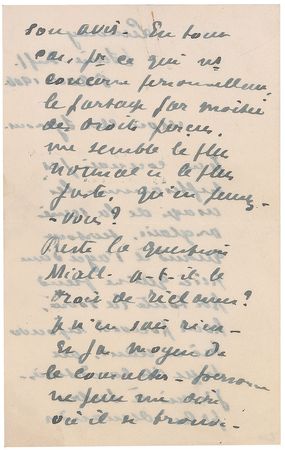 son avis. En tout
cas, pr ce qui ns
concerne personnellemt,
le partage par moitié
des droits perçus,
me semble le plus
normal et le plus
juste, qu'en pensez-
-vous?
Reste la question
Miall - a-t-il le
droit de réclamer?
Je n'en sais rien -
Et pas moyen de
le consulter - personne
ne peut me dire
où il se trouve.